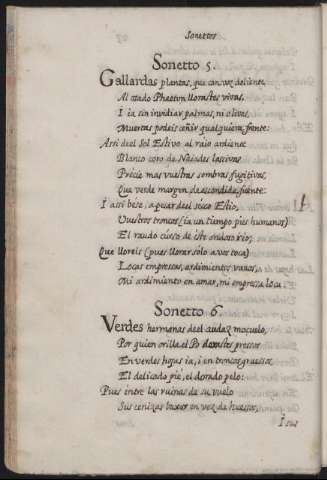 Sonettos
Sonetto 5.
Gallardas plantas, que con voz doliente
Al osado Phaeton llorastes vivas,
I ia sin invidiar palmas, ni olivas,
Muertas podeis ceñir qualquiera frente:
Assi deel Sol Estivo al raio ardiente
Blanco coro de Náiades lascivas
Precie mas vuestras sombras fugitivas,
Que verde margen de escondida fuente:
I assi bese, a pesar deel seco Estio,
Vuestros troncos (ia un tiempo pies humanos)
El raudo curso de este undoso rio;
Que lloreis (pues llorar solo a vos toca)
Locas empresas, ardimientos vanos,
Mi ardimiento en amar, mi empresa loca.
Sonetto 6.
Verdes hermanas deel audaz moçuelo,
Por quien orilla el Po dexastes presos
En verdes hojas ia, i en troncos gruesos
El delicado pie, el dorado pelo:
Pues entre las ruinas de su vuelo
Sus cenizas baxar en vez de huessos,
I sus